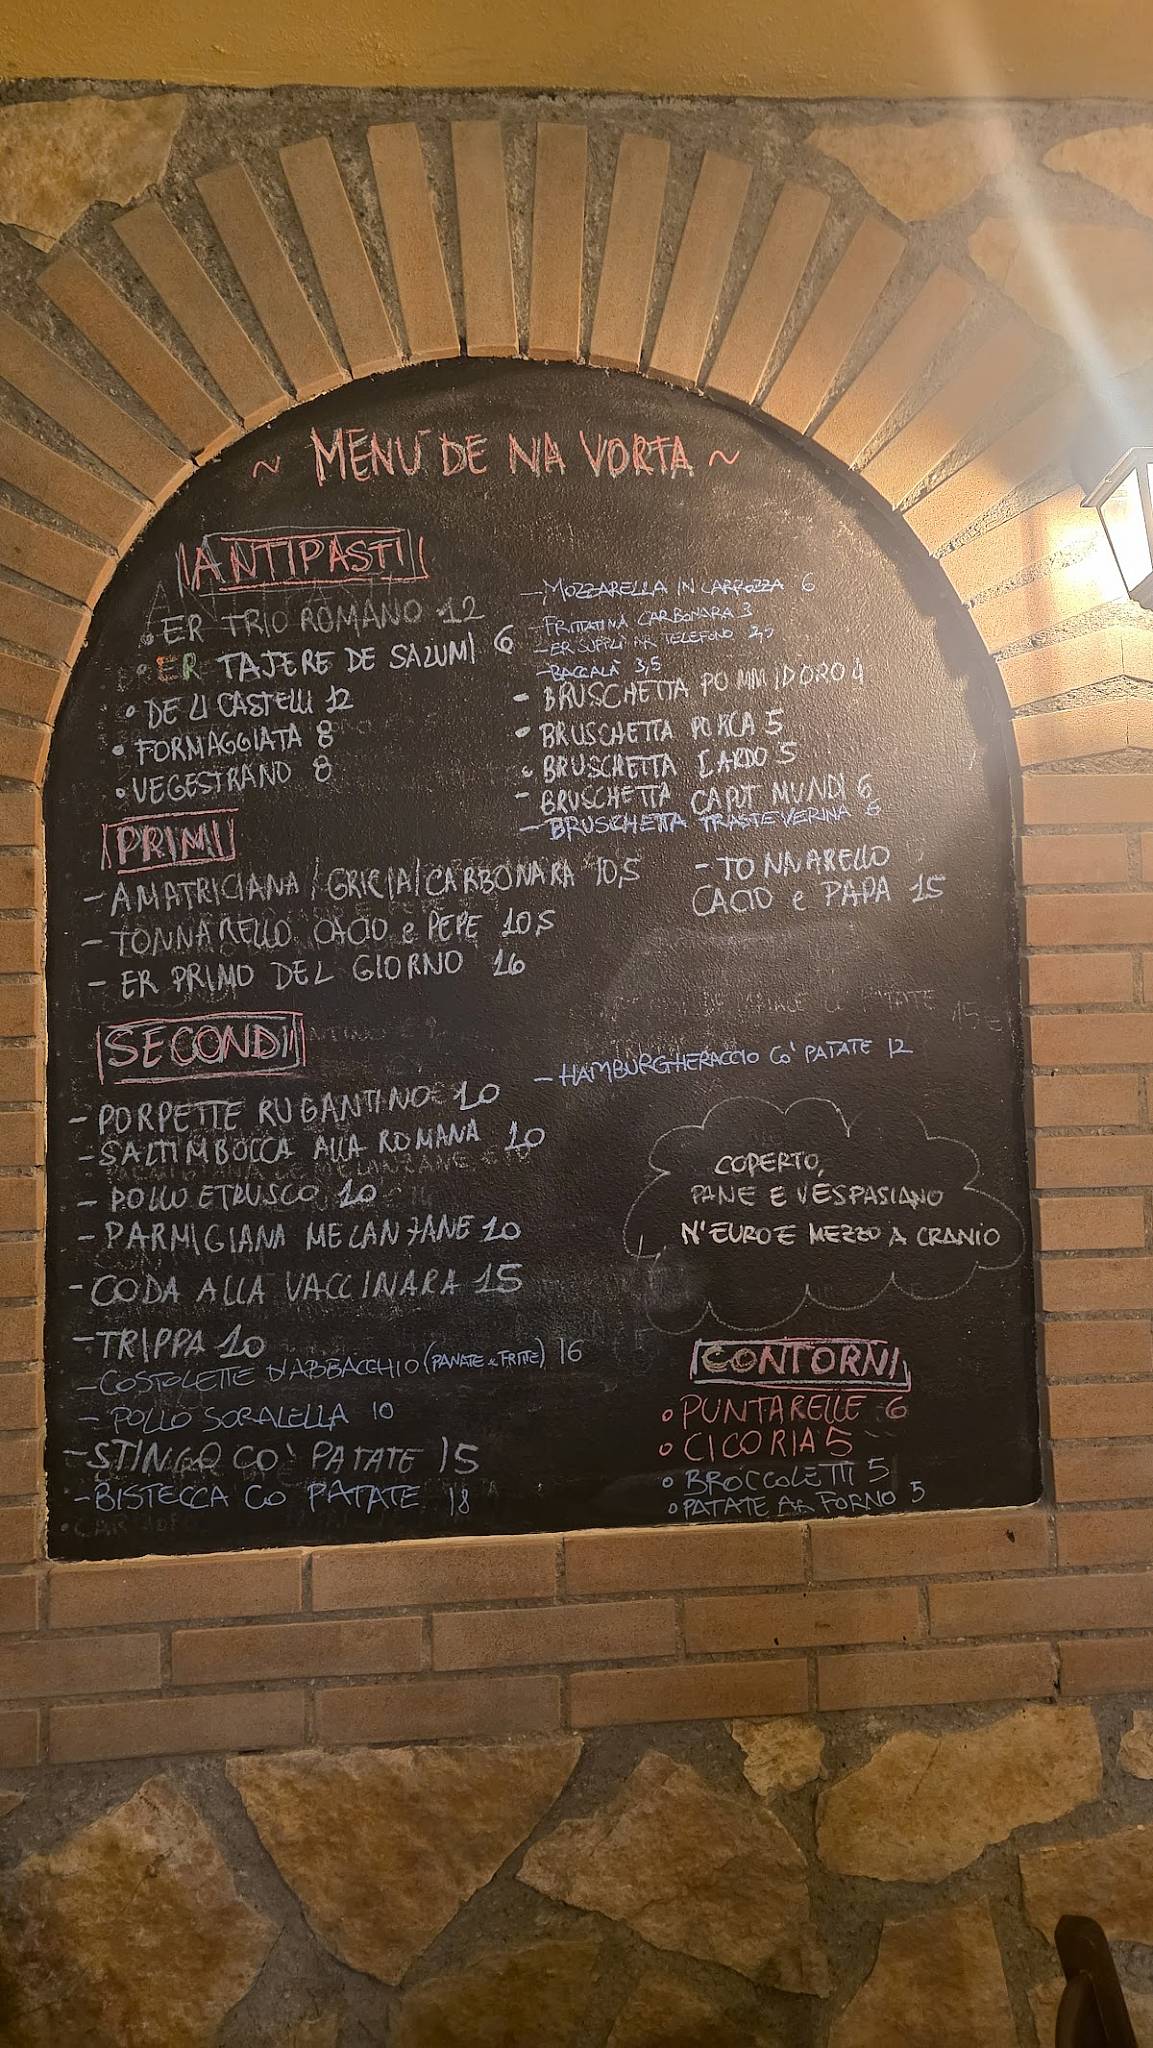 ~ MENÚ DE NA VORTA ~
ANTIPASTI
• ER TRIO ROMANO 12
• ER TAJERE DE SALUMI 6
• DE LI CASTELLI 12
• FORMAGGIATA 8
• VEGESTRANO 8
- MOZZARELLA IN CARROZZA 6
- FRITTATINA CARBONARA 3
- ER SUPPLÌ AR TELEFONO 2,5
- BACCALÀ 3,5
- BRUSCHETTA POMMIDORO 4
• BRUSCHETTA PORCA 5
• BRUSCHETTA LARDO 5
- BRUSCHETTA CAPUT MUNDI 6
- BRUSCHETTA TRASTEVERINA 6
PRIMI
- AMATRICIANA / GRICIA / CARBONARA 10,5
- TONNARELLO CACIO e PEPE 10,5
- ER PRIMO DEL GIORNO 16
- TONNARELLO
CACIO e PAPA 15
SECONDI
- PORPETTE RUGANTINO 10
- SALTIMBOCCA ALLA ROMANA 10
- POLLO ETRUSCO 10
- PARMIGIANA MELANZANE 10
- CODA ALLA VACCINARA 15
- TRIPPA 10
- COSTOLETTE D'ABBACCHIO (PANATE e FRITTE) 16
- POLLO SORALELLA 10
- STINGO CO' PATATE 15
- BISTECCA CO PATATE 18
- HAMBURGHERACCIO CO' PATATE 12
COPERTO,
PANE E VESPASIANO
N'EURO E MEZZO A CRANIO
CONTORNI
• PUNTARELLE 6
• CICORIA 5
• BROCCOLETTI 5
• PATATE AR FORNO 5